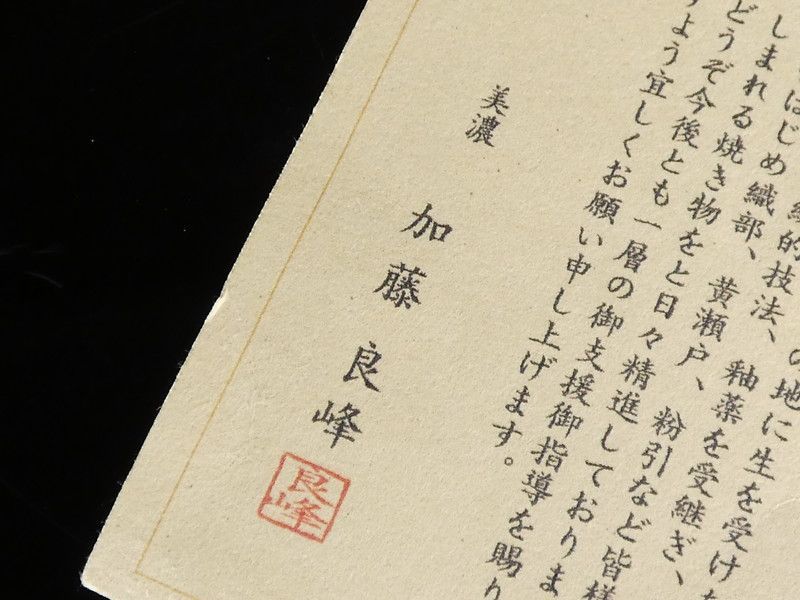 の地に生を受け
的技法、釉薬を受継ぎ、
はじめ織部、黄瀬戸、粉引など皆様
しまれる焼き物をと日々精進しておりま
どうぞ今後とも一層の御支援御指導を賜り
よう宜しくお願い申し上げます。
美濃
加藤 良峰
良峰